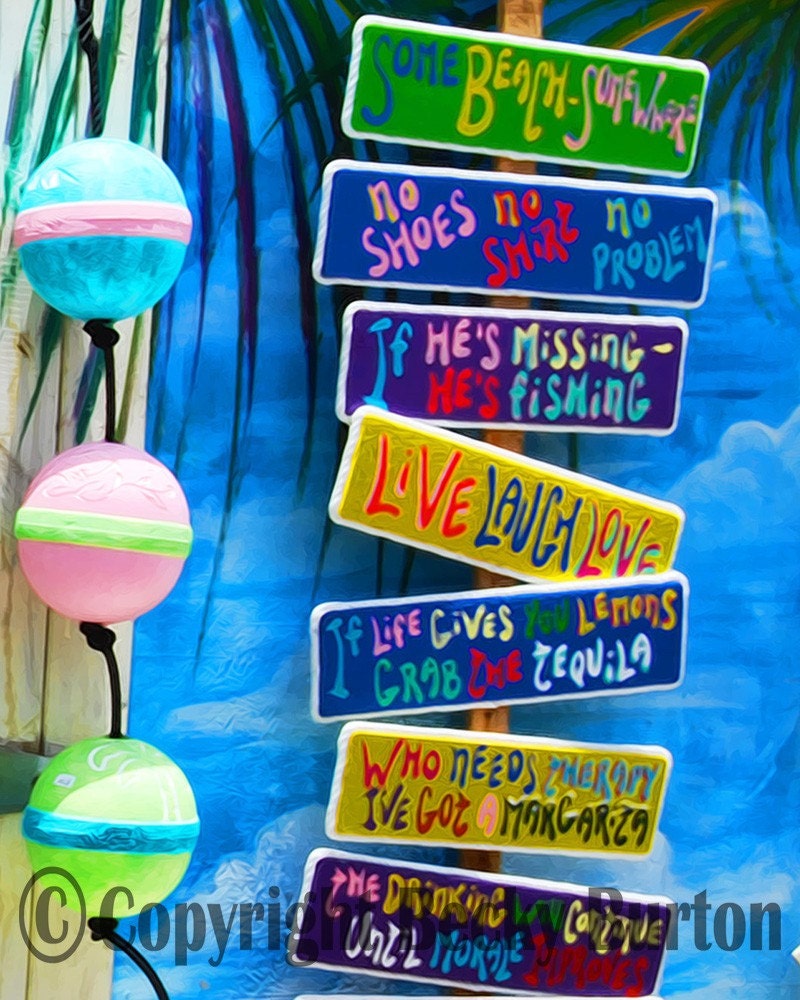 SOME BEACH-SOMEWHERE
NO NO NO
SHOES SHIRT PROBLEM
If HE'S MISSING-
HE'S FISHING
LIVE LAUGH LOVE
If LIFE GIVES YOU LEMONS
GRAB THE TEQUILA
WHO NEEDS THERAPY
I'VE GOT A MARGARITA
THE DRINKING WILL CONTINUE
UNTIL MORALE IMPROVES
© Copyright Becky Burton